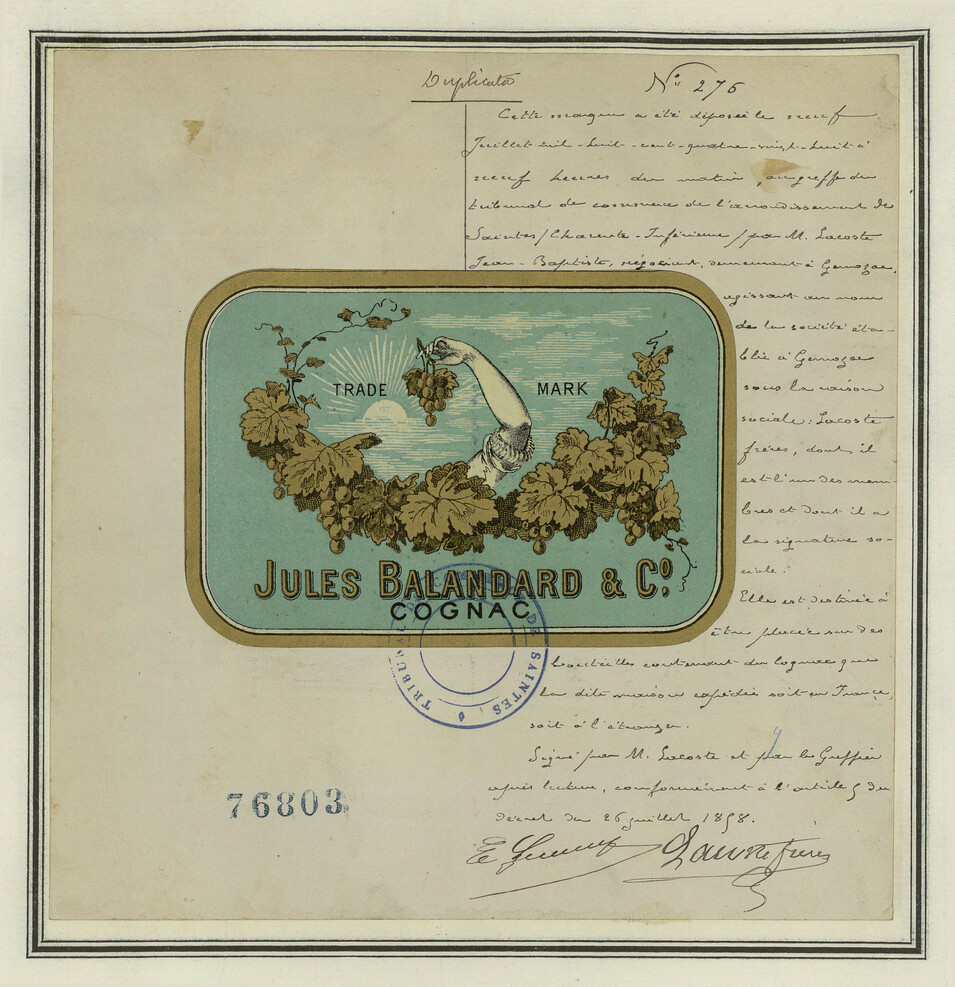 Duplicata
N° 276
Cette marque a été déposée le neuf
Juillet mil-huit-cent-quatre-vingt-huit à
neuf heures du matin, au greffe du
tribunal de commerce de l'arrondissement de
Saintes (Charente-Inférieure) par M. Lacoste
Jean-Baptiste, négociant, demeurant à Gemozac,
agissant au nom
de la société éta-
blie à Gemozac
sous la raison
sociale: Lacoste
frères, dont il
est l'un des mem-
bres et dont il a
la signature so-
ciale.
Elle est destinée à
être placée sur des
bouteilles contenant du cognac que
la dite maison expédie soit en France,
soit à l'étranger.
Signé par M. Lacoste et par le Greffier
après lecture, conformément à l'article 5 du
décret du 26 juillet 1858.
Lacoste frères
TRADE MARK
JULES BALANDARD & Co.
COGNAC
TRIBUNAL DE COMMERCE DE SAINTES
76803